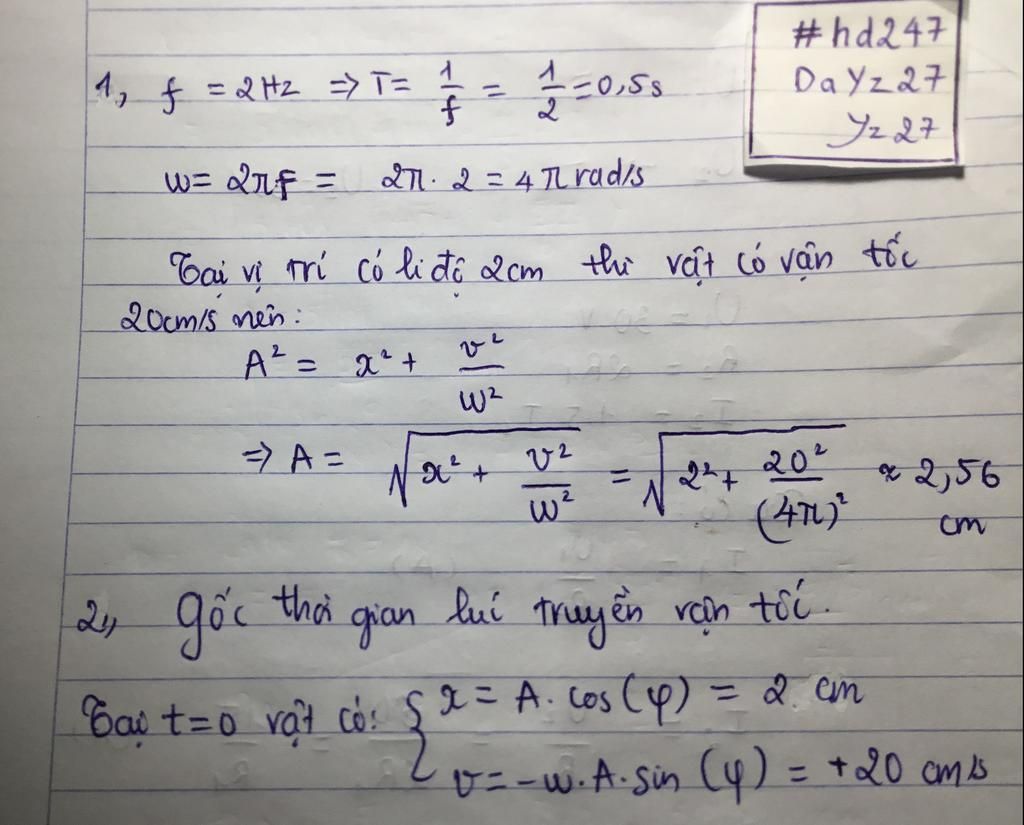 #hd247
DaYz27
Yz27
1, f = 2Hz => T = 1/f = 1/2 = 0,5s
w = 2πf = 2π. 2 = 4π rad/s
Tại vị trí có li độ 2cm thì vật có vận tốc
20cm/s nên:
A² = x² + v²/w²
=> A = √(x² + v²/w²) = √(2² + 20²/(4π)²) ≈ 2,56
cm
2,, Gốc thời gian lúc truyền vận tốc.
Tại t=0 vật có: { x = A. cos(φ) = 2 cm
v = -w.A.sin(φ) = +20 cm/s